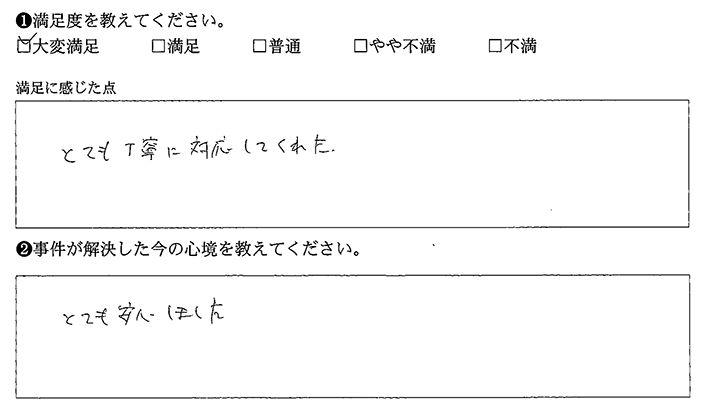 ❶満足度を教えてください。
☑大変満足 □満足 □普通 □やや不満 □不満
満足に感じた点
とても丁寧に対応してくれた.
❷事件が解決した今の心境を教えてください。
とても安心しました